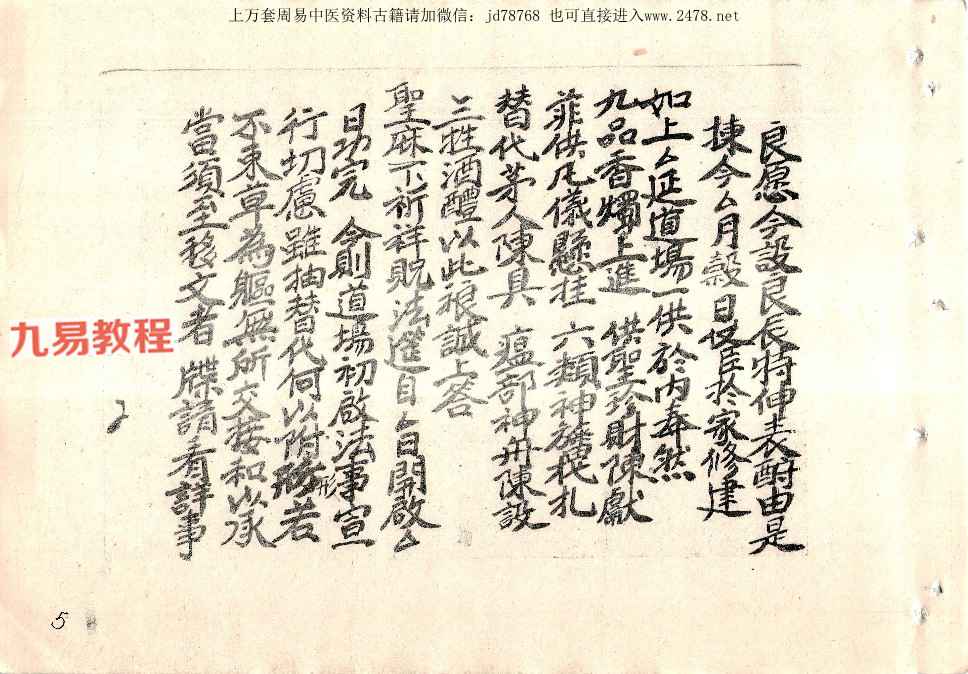 上万套周易中医资料古籍请加微信：jd78768 也可直接进入www.2478.net
良愿今設良辰特伸表酧由是
揀今厶月穀日伇臣於家修建
如上厶延道場一供於内奉然
九品香燭上進 供聖珍財陳獻
菲供凡儀懸挂 六類神旛代扎
替代茅人陳具 瘟部神舟陳設
三牲酒醴以此 誠上答
聖庥下祈祥貺法 自厶日開啟厶
日功完 今則道場初啟法事宣
行切慮雖抽替代何以附形若
不束草為軀無所交接和以承
當須至移文者 牒請看詳事
九易教程
2
5